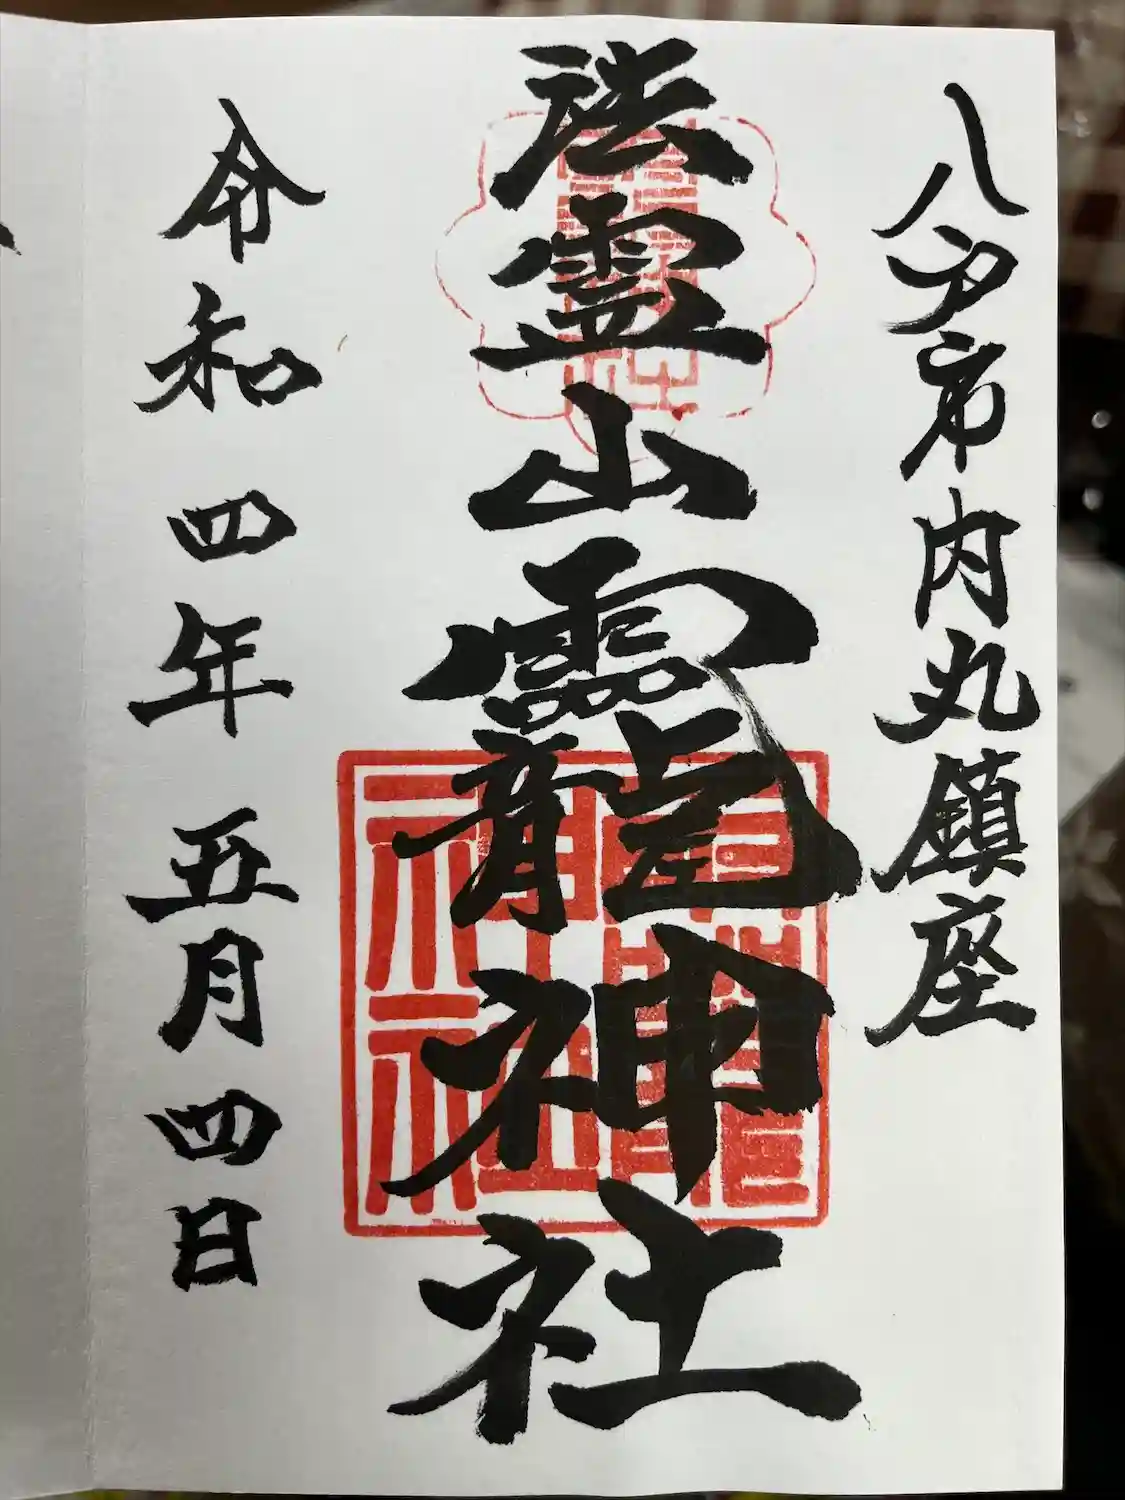 八戸市内丸鎮座
法霊山龗神社
令和四年五月四日